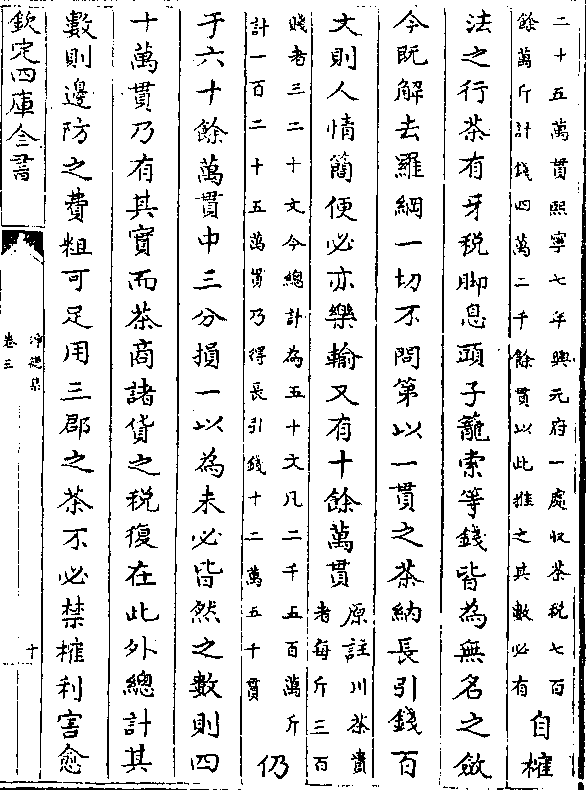 二十五萬貫熙寧七年興元府一處收茶税七百
餘萬斤計錢四萬二千餘貫以此推之其數必有
自榷
法之行茶有牙税脚息頭子籠索等錢皆為無名之斂
今既解去羅網一切不問第以一貫之茶納長引錢百
文則人情簡便必亦樂輸又有十餘萬貫
原註川茶貴
者每斤三百
賤者三二十文今總計為五十文凡二千五百萬斤
計一百二十五萬貫乃得長引錢十二萬五千貫
仍
于六十餘萬貫中三分損一以為未必皆然之數則四
十萬貫乃有其實而茶商諸貨之税復在此外總計其
數則邊防之費粗可足用三郡之茶不必禁榷利害愈
欽定四庫全書
淨德集
卷三
十